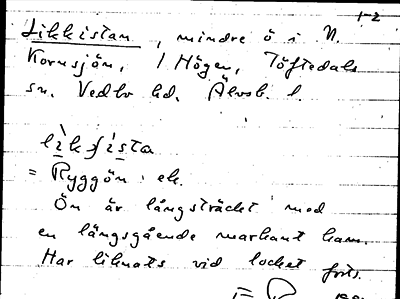 1-2
Likkistan, mindre ö i N.
Kornsjön, 1 Högen, Töftedals
sn. Vedbo hd. Älvsb. l.
lìkɟísta
= Ryggön ek.
Ön är långsträckt med
en längsgående markant kam.
Har liknats vid locket forts.